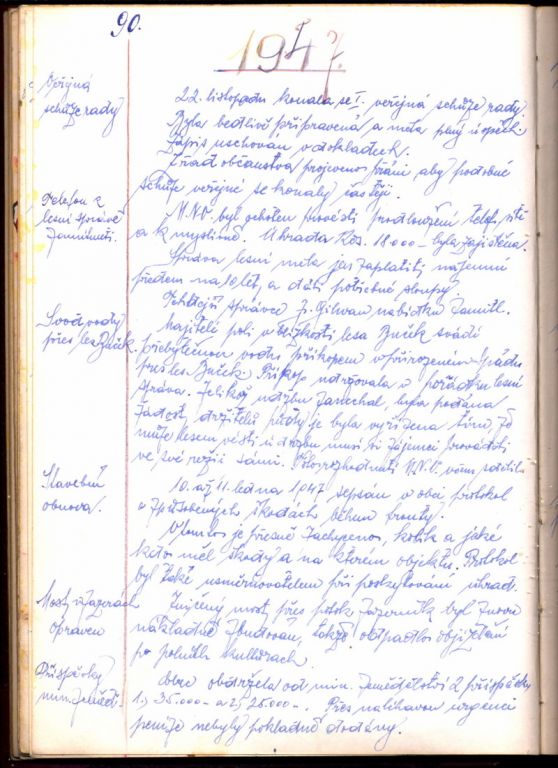 90.
1947.
Veřejná
schůze rady
22. listopadu konala se I. veřejná schůze rady.
Byla bedlivě připravená a měla plný úspěch.
Zápis uschován v dokladech.
Z řad občanstva projeveno přání aby podobné
schůze veřejné se konaly častěji.
Telefon z
lesní správě
Zamítnuti.
M.N.O byl ochoten provésti prodloužení telef. sítě
a k myslivně. Úhrada Kčs. 18.000- byla zajištěna.
Správa lesní měla jas zaplatiti nájemné
předem na 10 let, a dáti potřebné sloupy.
Tehdejší správce Jr. nabídku zamítl.
Svod vody
přes les Buček.
Majitelé polí v blízkosti lesa Buček svádí
přebytečnou vodu příkopem v přirozeném spádu
přes les Buček. Příkop udržovala v pořádku lesní
správa. Jelikož údržbu zanechal, byla podána
žádost držitelů půdy je byla vyřízena tím, že
může lesem vésti údržbu musí si zájemci prováděti
ve své režii sámi. rozhodnuti
Stavební
obnova.
10. až 11. ledna 1947 sepsán v obci protokol
o způsobených škodách během fronty.
V tomto je přesně zachyceno, kolik a jaké
kdo měl škody a na kterém objektu. Protokol
byl také usměrňovatelem při poskytování úhrad.
Most v Jazerách
opraven
Zničený most přes potok Jazerník byl znovu
nákladně zbudován, takže odpadlo objíždění
po polních kulturách.
Příspěvky
min. zeměd.
Obec obdržela od min. zemědělství 2 příspěvky
1.) 35.000- a 2) 25.000-. Přes naléhavou urgenci
peníze nebyly pokladně dodány.